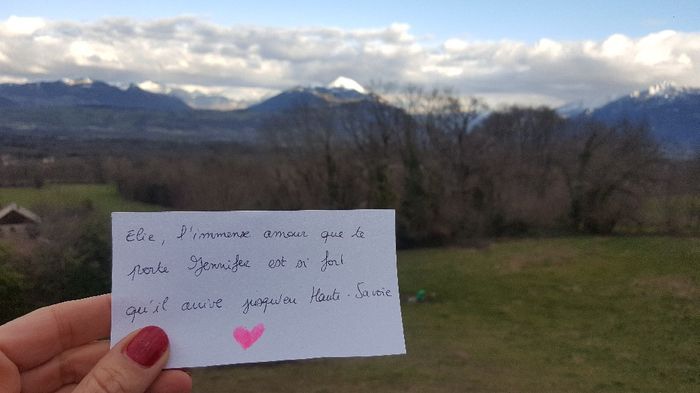 Elie, l'immense amour que te
porte Jennifer est si fort
qu'il arrive jusqu'en Haute-Savoie